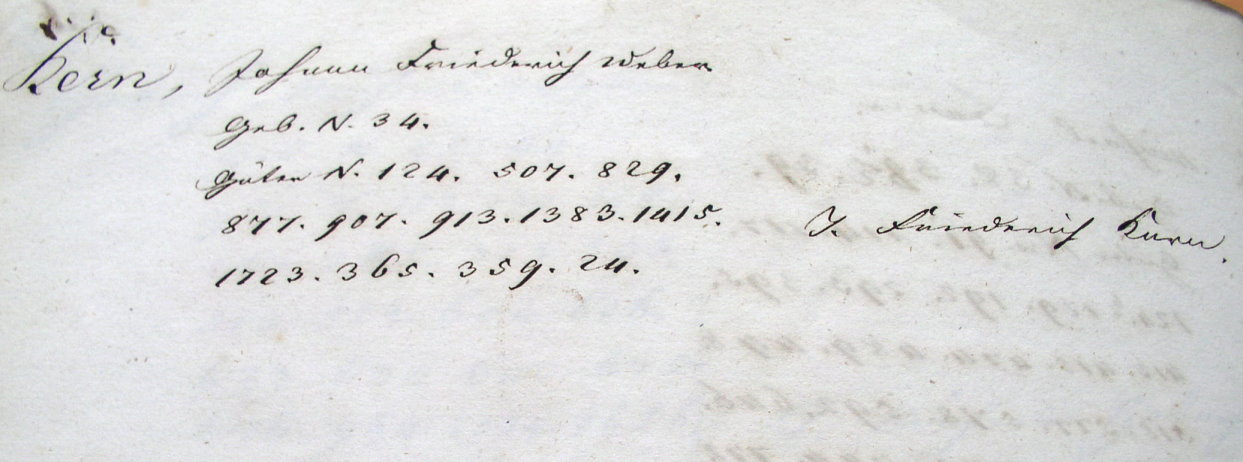 Kern, Johann Friederich Weber
Geb. N. 34.
Güter N. 124. 507. 829.
877. 907. 913. 1383. 1415.
J. Friederich Kern.
1723. 365. 359. 24.